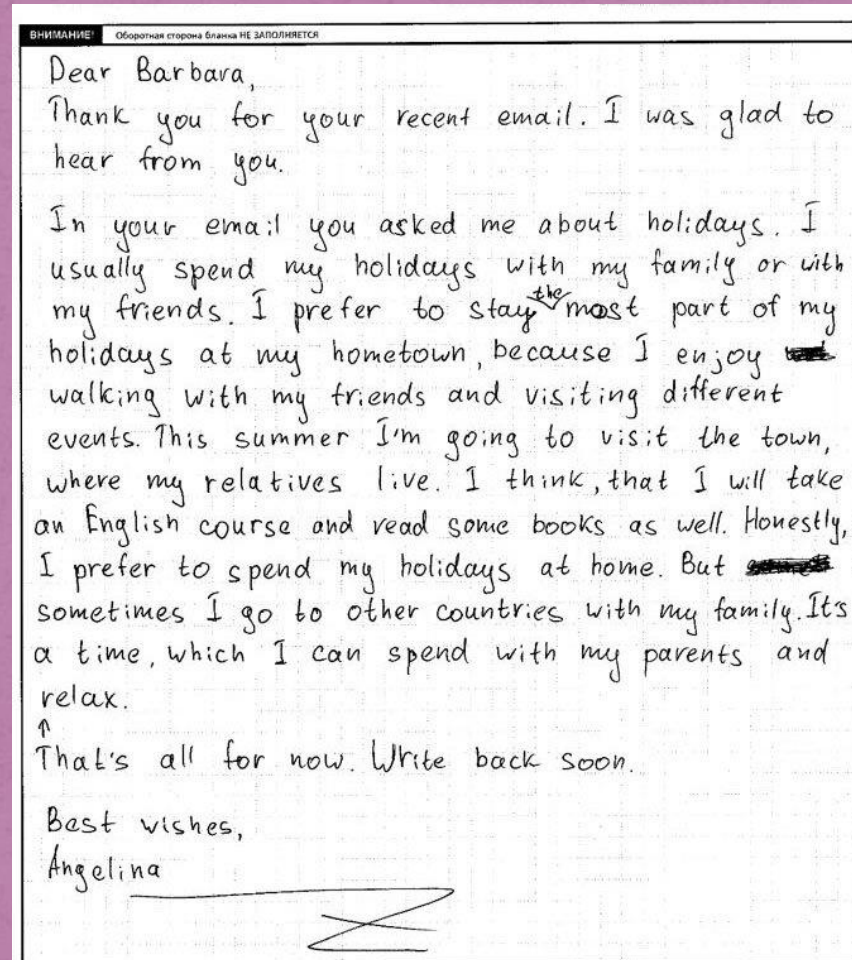 ВНИМАНИЕ! Оборотная сторона бланка НЕ ЗАПОЛНЯЕТСЯ
Dear Barbara,
Thank you for your recent email. I was glad to
hear from you.
In your email you asked me about holidays. I
usually spend my holidays with my family or with
my friends. I prefer to stay the most part of my
holidays at my hometown, because I enjoy
walking with my friends and visiting different
events. This summer I'm going to visit the town,
where my relatives live. I think, that I will take
an English course and read some books as well. Honestly,
I prefer to spend my holidays at home. But
sometimes I go to other countries with my family. It's
a time, which I can spend with my parents and
relax.
↑
That's all for now. Write back soon.
Best wishes,
Angelina